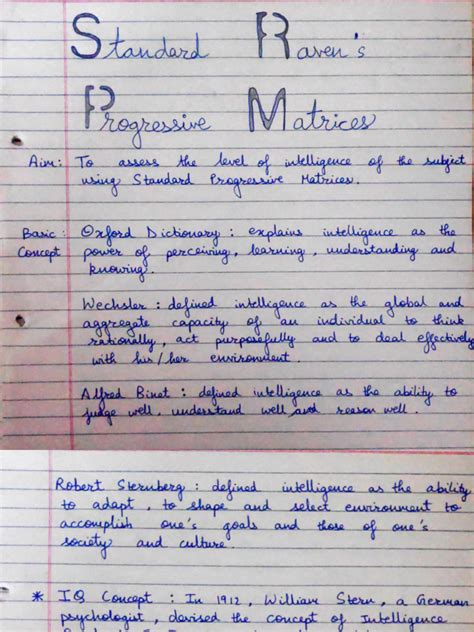 Standard Raven's
Progressive Matrices
Aim: To assess the level of intelligence of the subject
using Standard Progressive Matrices.
Basic Concept : Oxford Dictionary : explains intelligence as the
power of perceiving, learning, understanding and
knowing.
Wechsler : defined intelligence as the global and
aggregate capacity of an individual to think
rationally, act purposefully and to deal effectively
with his/her environment.
Alfred Binet : defined intelligence as the ability to
judge well, understand well and reason well.
Robert Sternberg : defined intelligence as the ability
to adapt, to shape and select environment to
accomplish one's goals and those of one's
society and culture.
* IQ Concept : In 1912, William Stern, a German
psychologist, devised the concept of Intelligence